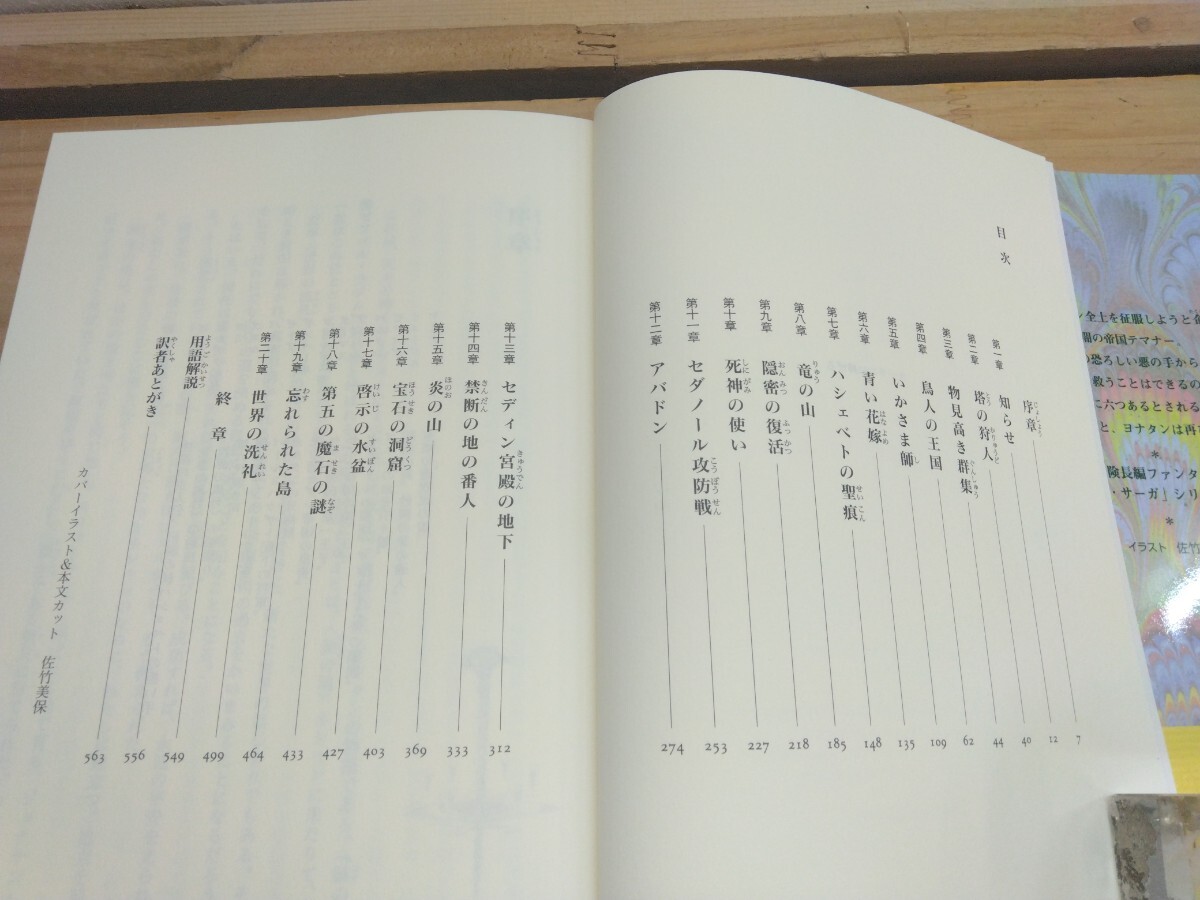 目次
序章 7
第一章 知らせ 12
第二章 塔の狩人 40
第三章 物見高き群集 44
第四章 鳥人の王国 62
第五章 いかさま師 109
第六章 青い花嫁 135
第七章 ハシェベトの聖痕 148
第八章 竜の山 185
第九章 隠密の復活 218
第十章 死神の使い 227
第十一章 セダノール攻防戦 253
第十二章 アバドン 274
第十三章 セディン宮殿の地下 312
第十四章 禁断の地の番人 333
第十五章 炎の山 369
第十六章 宝石の洞窟 403
第十七章 啓示の水盆 427
第十八章 第五の魔石の謎 433
第十九章 忘れられた島 464
第二十章 世界の洗礼 499
終章 549
用語解説 556
訳者あとがき 563
カバーイラスト&本文カット 佐竹美保
ン全土を征服しようと
の帝国テマナー、
の恐ろしい悪の手から
救うことはできるの
に六つあるとされる
と、ヨナタンは再
*
険長編ファンタ
・サーガ」シリ
*
イラスト 佐竹